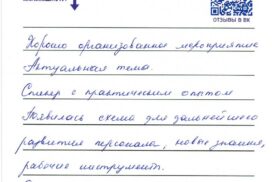 ОТЗЫВЫ В ВК
Хорошо организованное мероприятие
Актуальная тема.
Спикер с практическим опытом
Появилась схема для дальнейшего
развития персонала, новые знания,
рабочие инструменты.